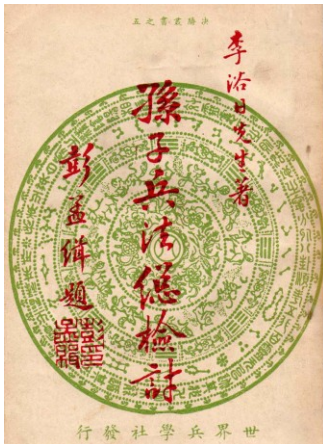 決勝叢書之五
李浴日先生著
孫子兵法總檢討
彭孟緝題
世界兵學社發行